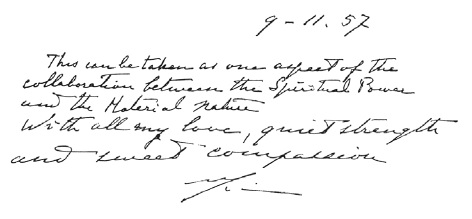 9-11.57
This can be taken as one aspect of the
collaboration between the Spiritual Power
and the Material nature
With all my love, quiet strength
and sweet compassion